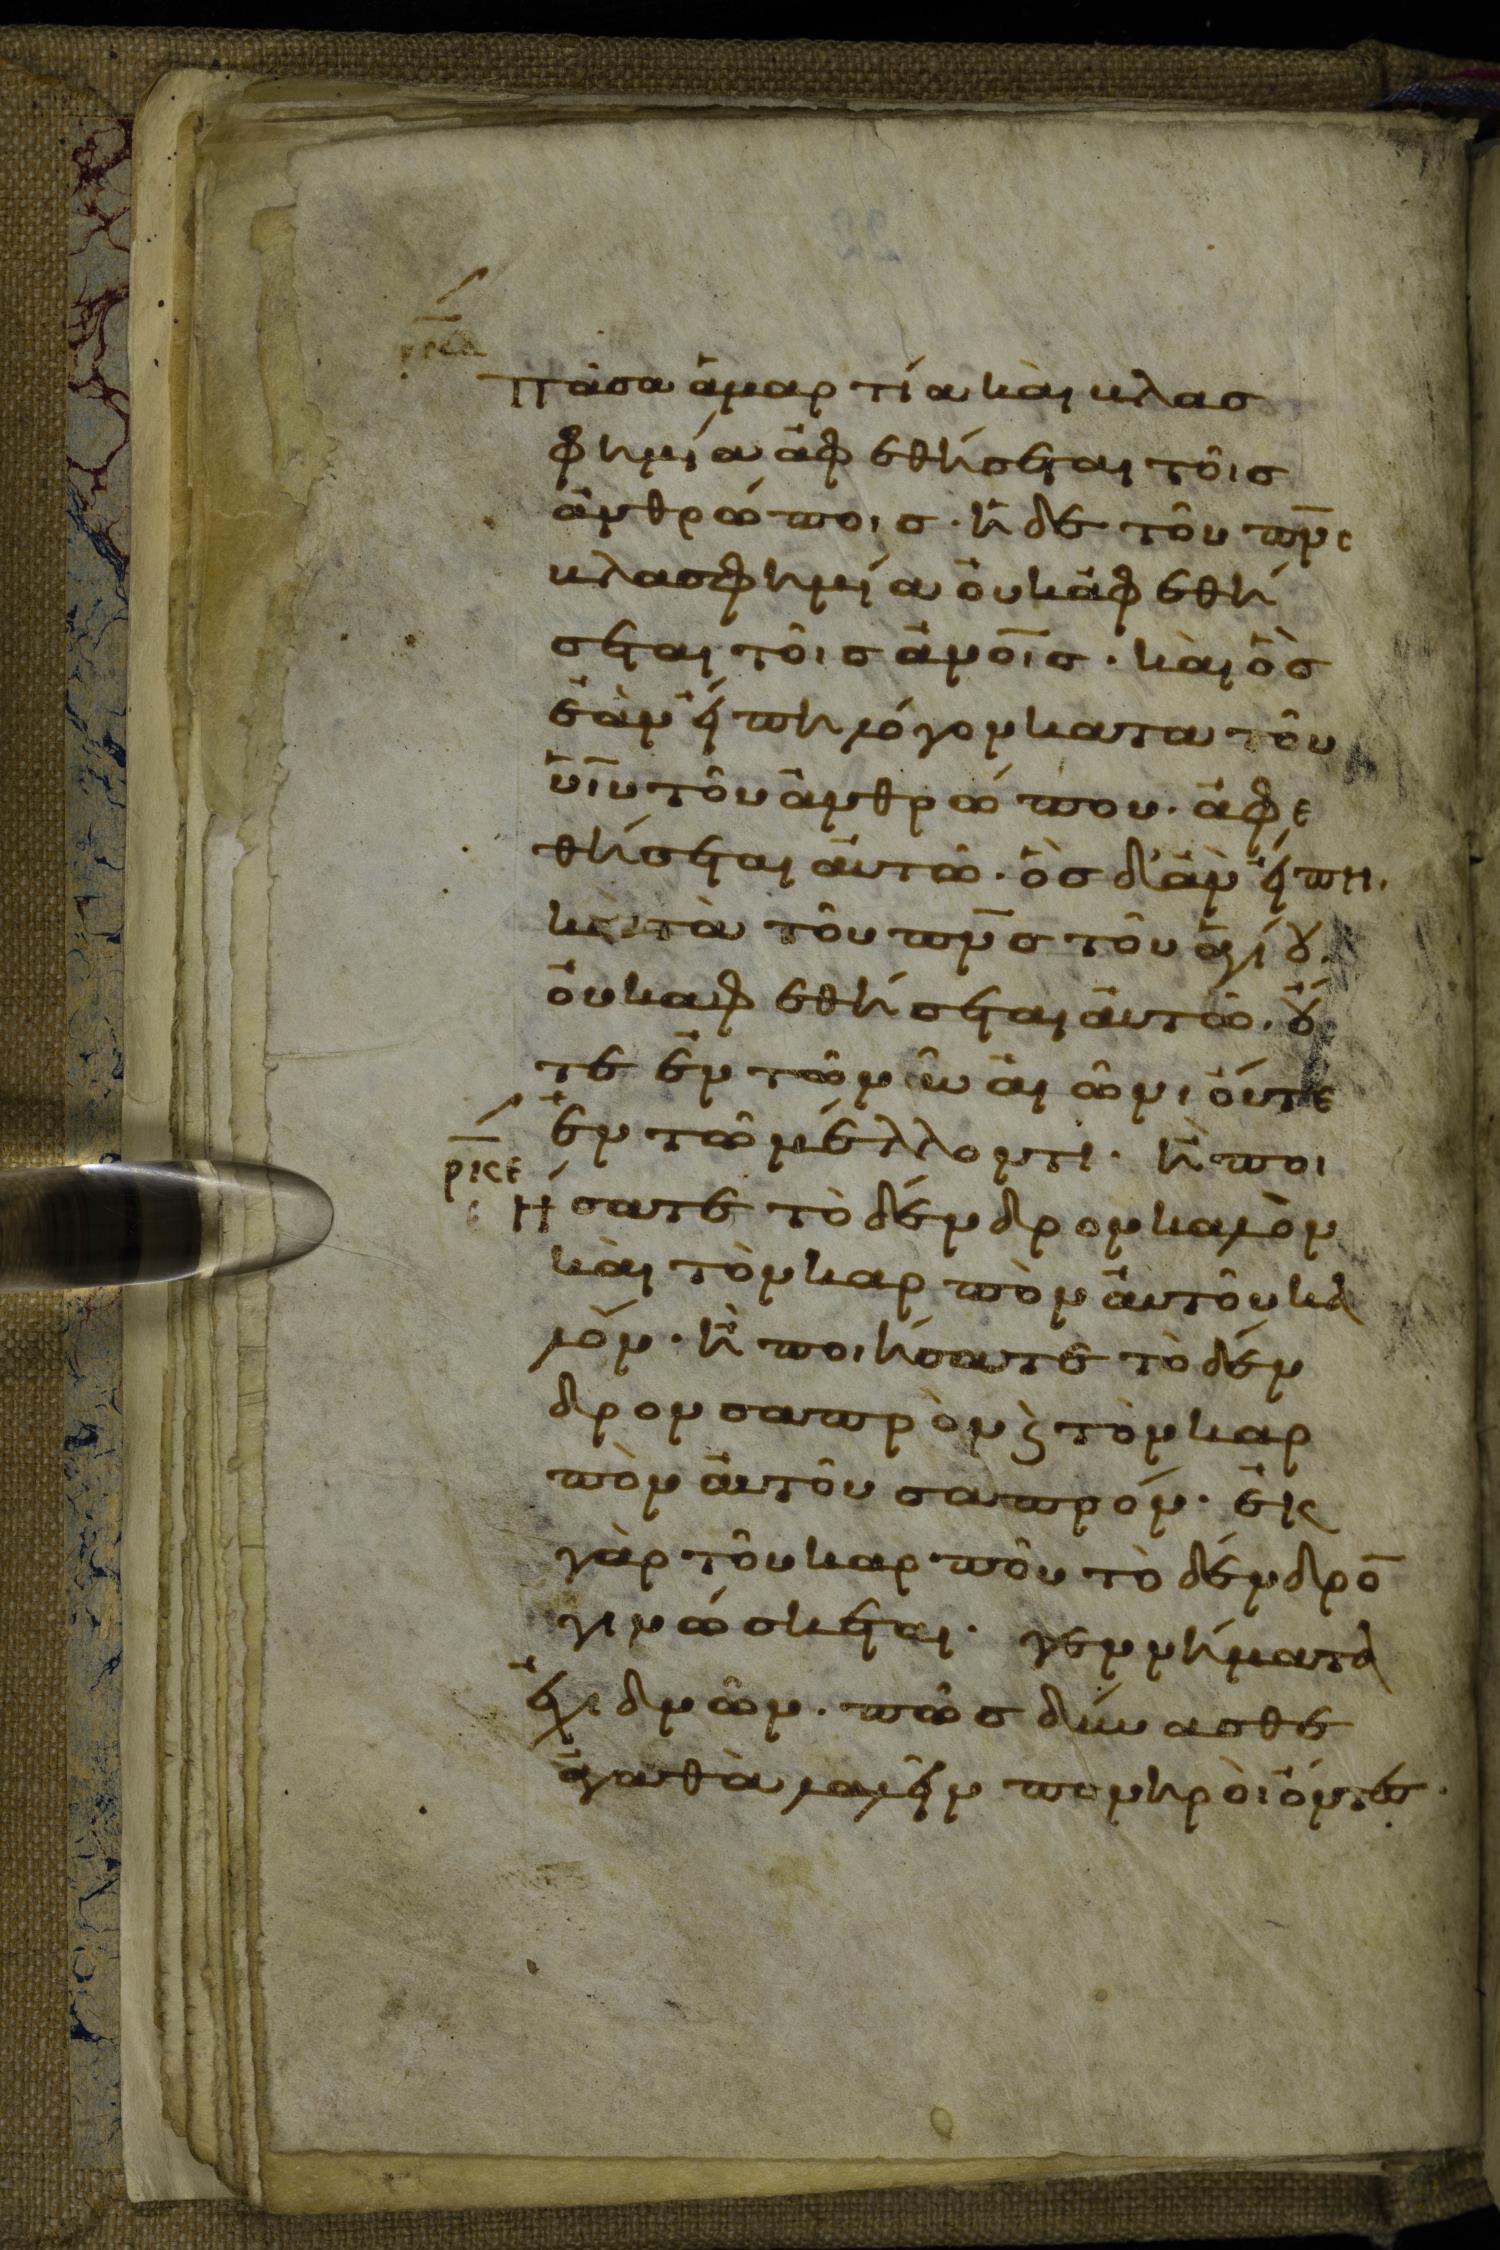 πᾶσα ἁμαρτία καὶ βλασ
φημία ἀφεθήσεται τοῖσ
ἀνθρώποισ· ἡ δὲ τοῦ πν̅ς
βλασφημία οὐκ ἀφεθή
σεται τοῖσ ἀν̅οισ· καὶ ὃσ
ἐὰν εἴπη λόγον κατα τοῦ
υἱ̅υ τοῦ ἀνθρώπου· ἀφε
θήσεται αὐτῶ· ὃσ δ' ἂν εἴπη
κατὰ τοῦ πν̅σ τοῦ ἁγίου·
οὐκ αφεθήσεται αὐτῶ· οὔ
τε ἐν τῶ νῦν αἰῶνι οὔτε
ἐν τῶ μέλλοντι· ἢ ποι
ρκε
ήσατε τὸ δένδρον καλὸν
καὶ τὸν καρπὸν αὐτοῦ κα
λόν· ἢ ποιήσατε τὸ δέν
δρον σαπρὸν ϗ τὸν καρ
πὸν αὐτοῦ σαπρόν· ἐκ
γὰρ τοῦ καρποῦ τὸ δένδρο̅
γινώσκεται· γεννήματα
ἐχιδνῶν· πῶσ δύνασθε
ἀγαθὰ λαλεῖν πονηρὸι ὄντεσ·